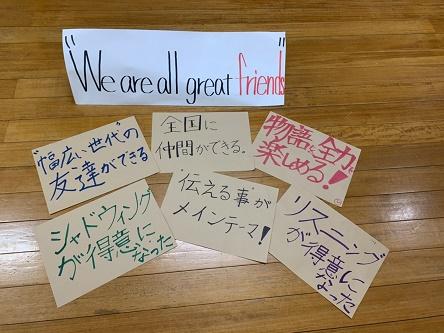 "We are all great friends"
"幅広い世代"の
友達ができる
全国に
仲間ができる。
物語に全力で
楽しめる!
シャドウィング
が得意に
なった
"伝える事"が
メインテーマ!
リスニング
が得意に
なった